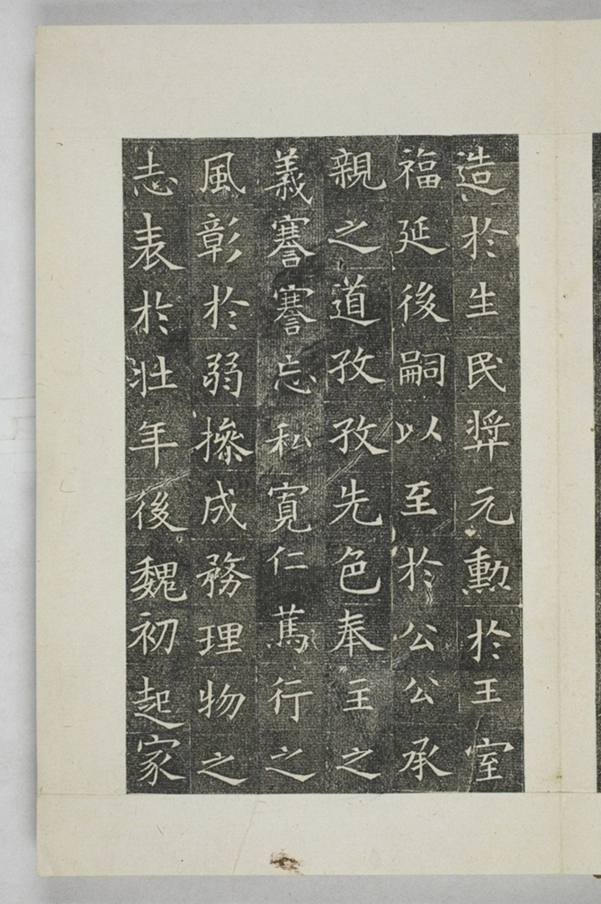 造於生民奨元勳於王室
福延後嗣以至於公公承
親之道孜孜先色奉主之
義謇謇忘私寛仁蔿行之
風彰於弱操成務理物之
志表於壯年後魏初起家